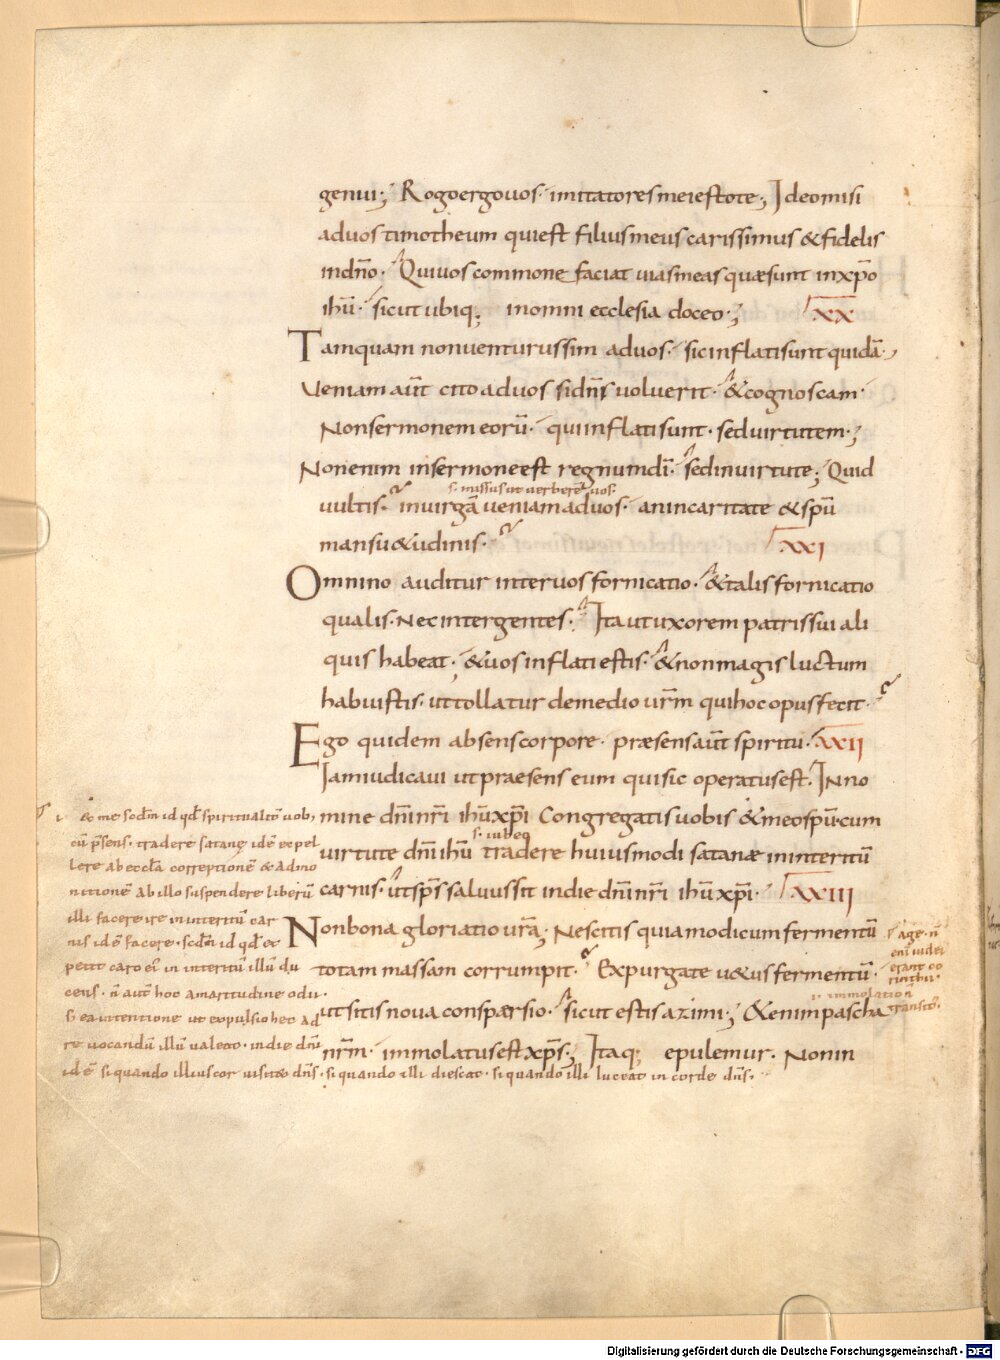 genui; Rogo ergo uos· imitatores mei estote; Ideo misi
ad uos timotheum qui est filius meus carissimus & fidelis
in dño· Qui uos commone faciat uias meas quæ sunt in xp̄o
ihū· sicut ubiq; in omni ecclesia doceo·; XX
Tamquam non uenturus sim ad uos· sic inflati sunt quidā·,
Ueniam aūt cito ad uos si dn̄s uoluerit· & cognoscam·
Non sermonem eorū· qui inflati sunt· sed uirtutem·;
Non enim in sermone est regnum dī· sed in uirtute; Quid
s· missus ut uerberē uos·
uultis· in uirgā ueniam ad uos· an in caritate & spū
mansu&udinis· XXI
Omnino auditur inter uos fornicatio· & talis fornicatio
qualis· Nec inter gentes· Ita ut uxorem patris sui ali
quis habeat· & uos inflati estis· & non magis luctum
habuistis· ut tollatur de medio ur̄m qui hoc opus fecit·
Ego quidem absens corpore· præsens aūt spiritu· XXII
Iam iudicaui ut praesens eum qui sic operatus est· In no
mine dn̄i nr̄i ihū xp̄i Congregatis uobis & meo spū· cum
s· iubeo
uirtute dn̄i ihū tradere huiusmodi satanæ in interitū
carnis· ut sp̄s saluus sit in die dn̄i nr̄i ihū xp̄i· XXIII
Non bona gloriatio ur̄a; Nescitis quia modicum fermentū
totam massam corrumpit· Expurgate u&us fermentū·
s· immolation̄
ut sitis noua consparsio· sicut estis azimi; & enim pascha
nr̄m· immolatus est xp̄s; Itaq; epulemur· Non in
eo me scd̄m id qd̄ spiritualit̄ uob,
cū p̄sens· tradere satane id ē expel
lere ab eccl̄a correptione & admo
nitionē ab illo suspendere liberū
illi facere ire in interitū car
nis id ē facere· scd̄m id qd̄ ex
petit caro ei in interitū illū du
cens· n̄ aut̄ hoc amaritudine odii·
s; ea intentione ut expulsio hec ad
re uocandū illū ualeat· in die dn̄i
id ē si quando illius cor uisitet dn̄s· si quando illi diescat· si quando illi luceat in corde dn̄s·
age· n̄
eni uide
erant co
rinthii·
transit·